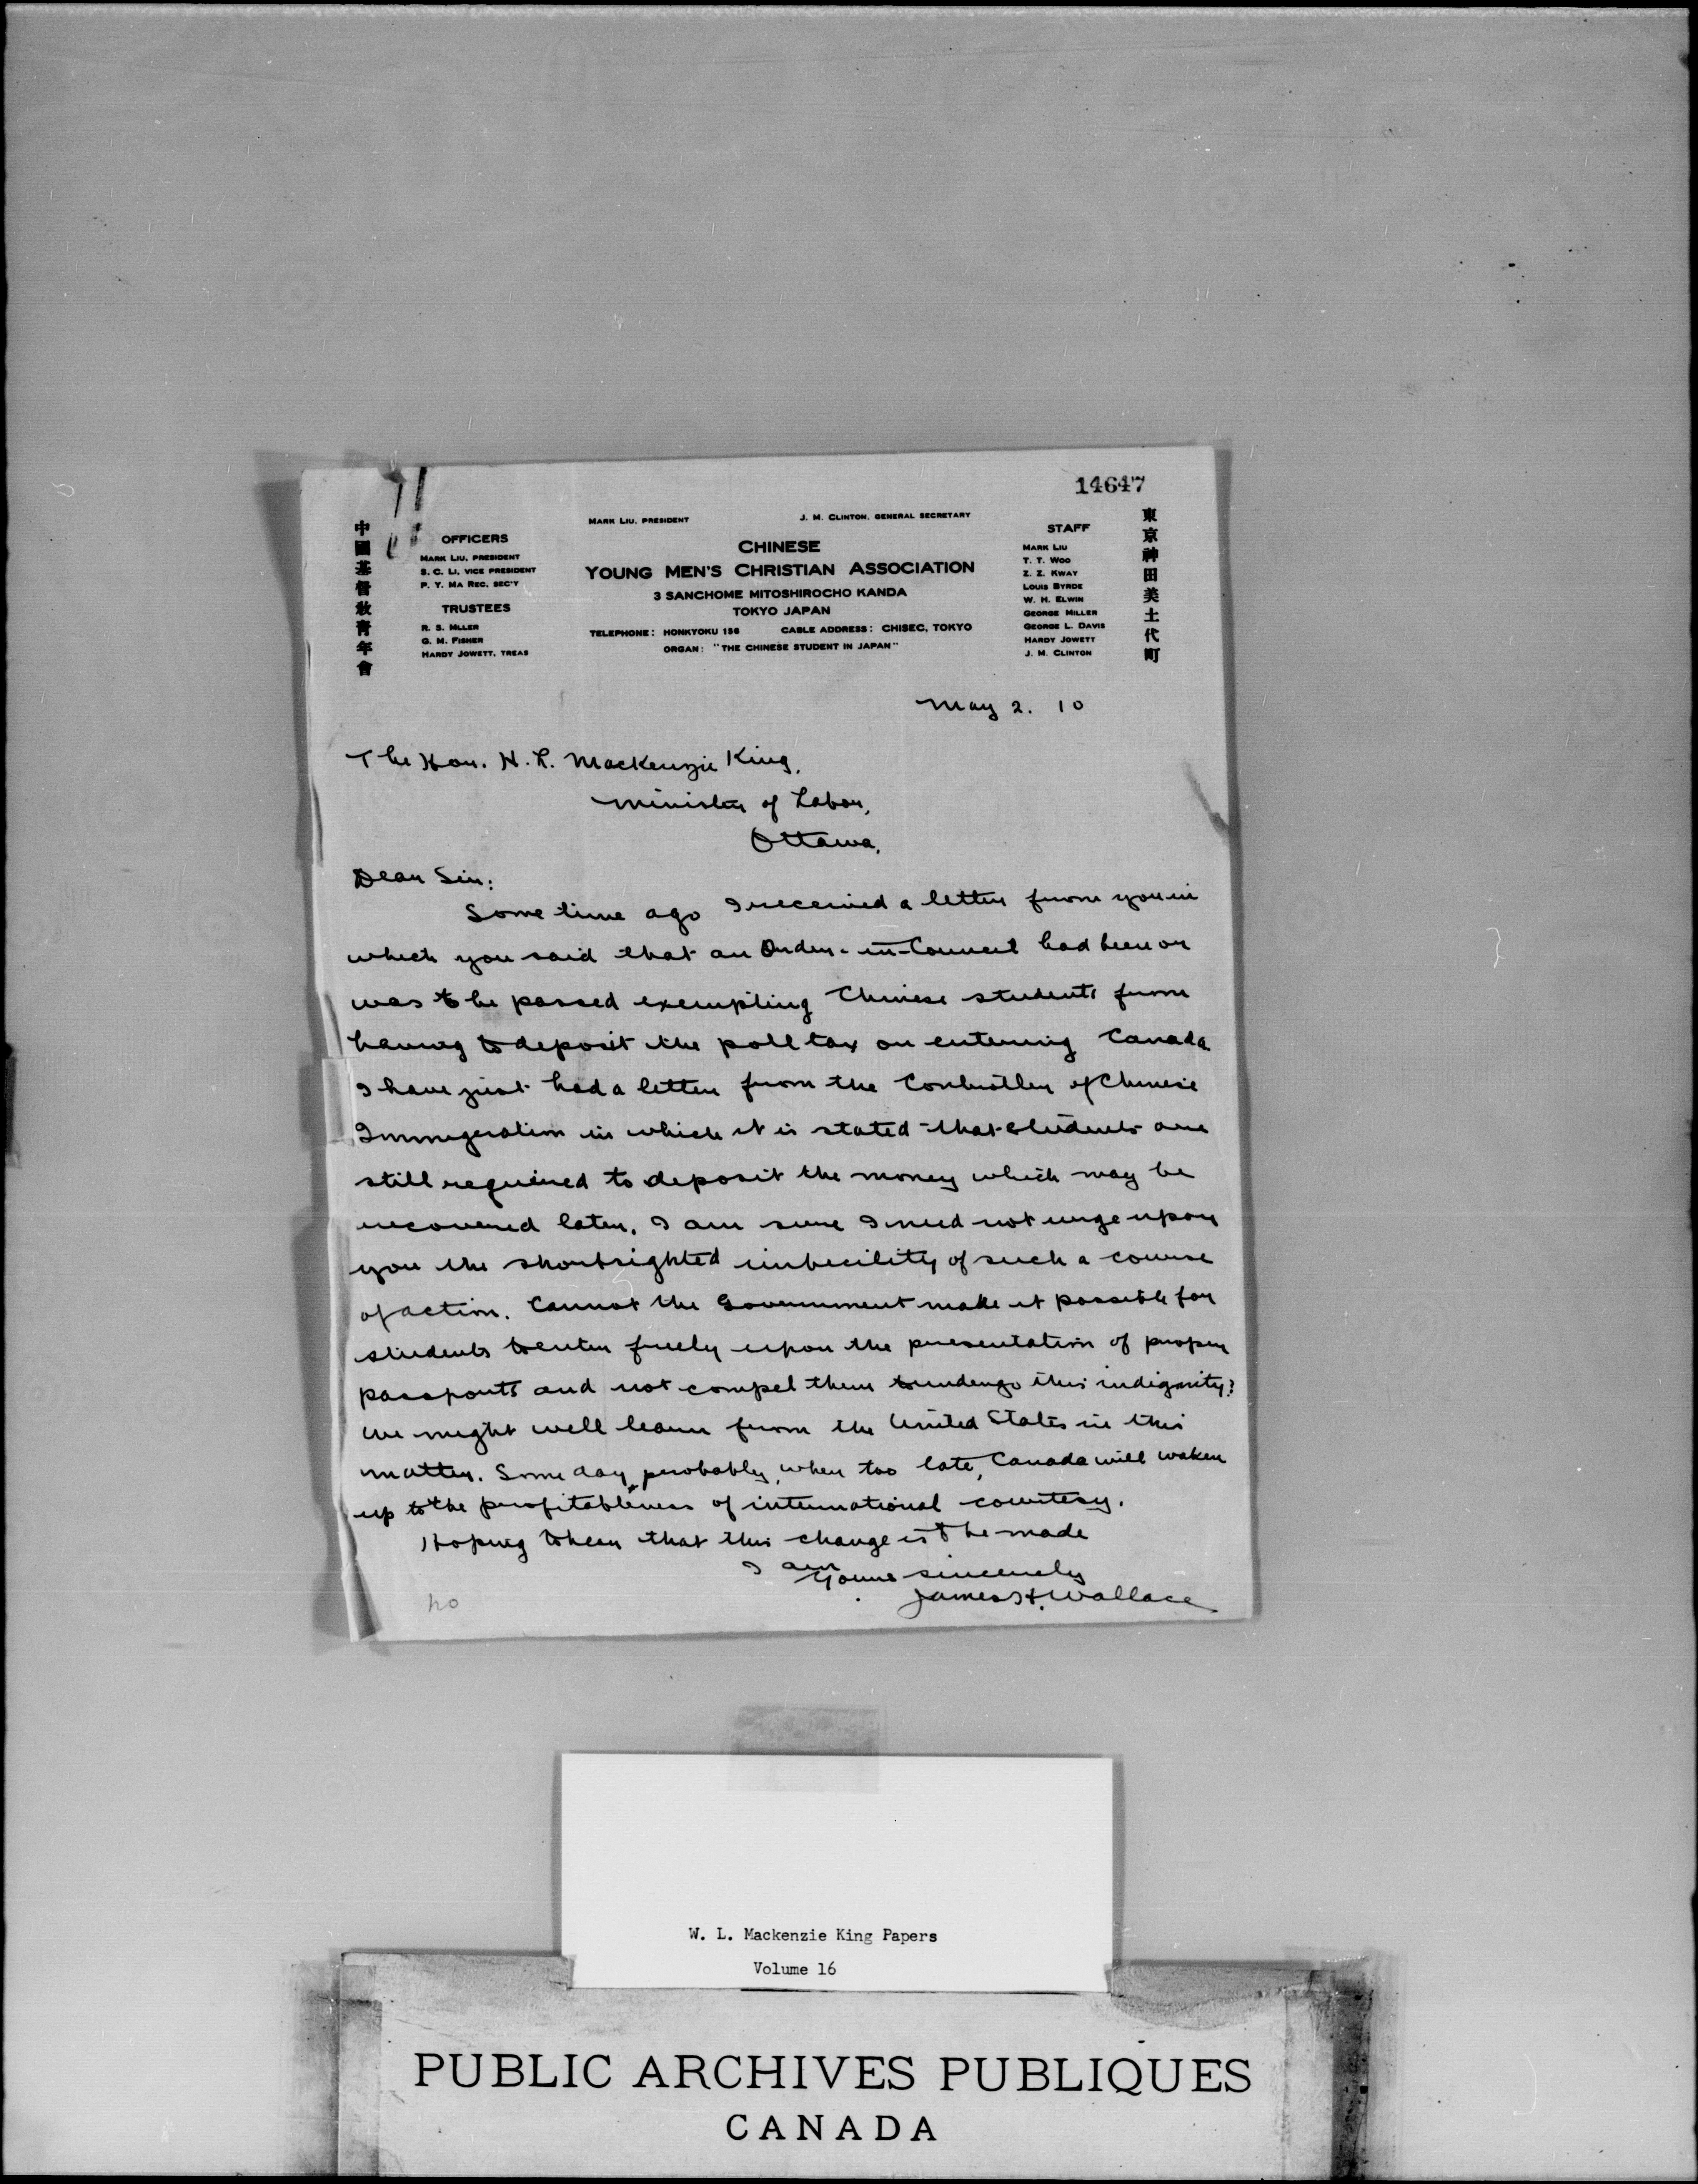 14647
MARK LIU, PRESIDENT
J. M. CLINTON, GENERAL SECRETARY
中國基督敎靑年會
OFFICERS
MARK LIU, PRESIDENT
S. C. LI, VICE PRESIDENT
P. Y. MA REC. SEC'Y
TRUSTEES
R. S. MLLER
G. M. FISHER
HARDY JOWETT, TREAS
CHINESE
YOUNG MEN'S CHRISTIAN ASSOCIATION
3 SANCHOME MITOSHIROCHO KANDA
TOKYO JAPAN
TELEPHONE: HONKYOKU 156 CABLE ADDRESS: CHISEC, TOKYO
ORGAN: "THE CHINESE STUDENT IN JAPAN"
STAFF
MARK LIU
T. T. WOO
Z. Z. KWAY
LOUIS BYRDE
W. H. ELWIN
GEORGE MILLER
GEORGE L. DAVIS
HARDY JOWETT
J. M. CLINTON
東京神田美土代町
May 2. 10
The Hon. H. L. Mackenzie King,
Minister of Labor,
Ottawa,
Dear Sir:
Some time ago I received a letter from you in
which you said that an Order-in-Council had been or
was to be passed exempting Chinese students from
having to deposit the poll tax on entering Canada
I have just had a letter from the Controller of Chinese
Immigration in which it is stated that students are
still required to deposit the money which may be
recovered later. I am sure I need not urge upon
you the shortsighted imbecility of such a course
of action. Cannot the Government make it possible for
students to enter freely upon the presentation of proper
passports and not compel them to undergo this indignity?
We might well learn from the United States in this
matter. Some day, probably, when too late, Canada will waken
up to the profitableness of international courtesy.
Hoping to hear that this change is to be made
I am
Yours sincerely
James H. Wallace
W. L. Mackenzie King Papers
Volume 16
PUBLIC ARCHIVES PUBLIQUES
CANADA